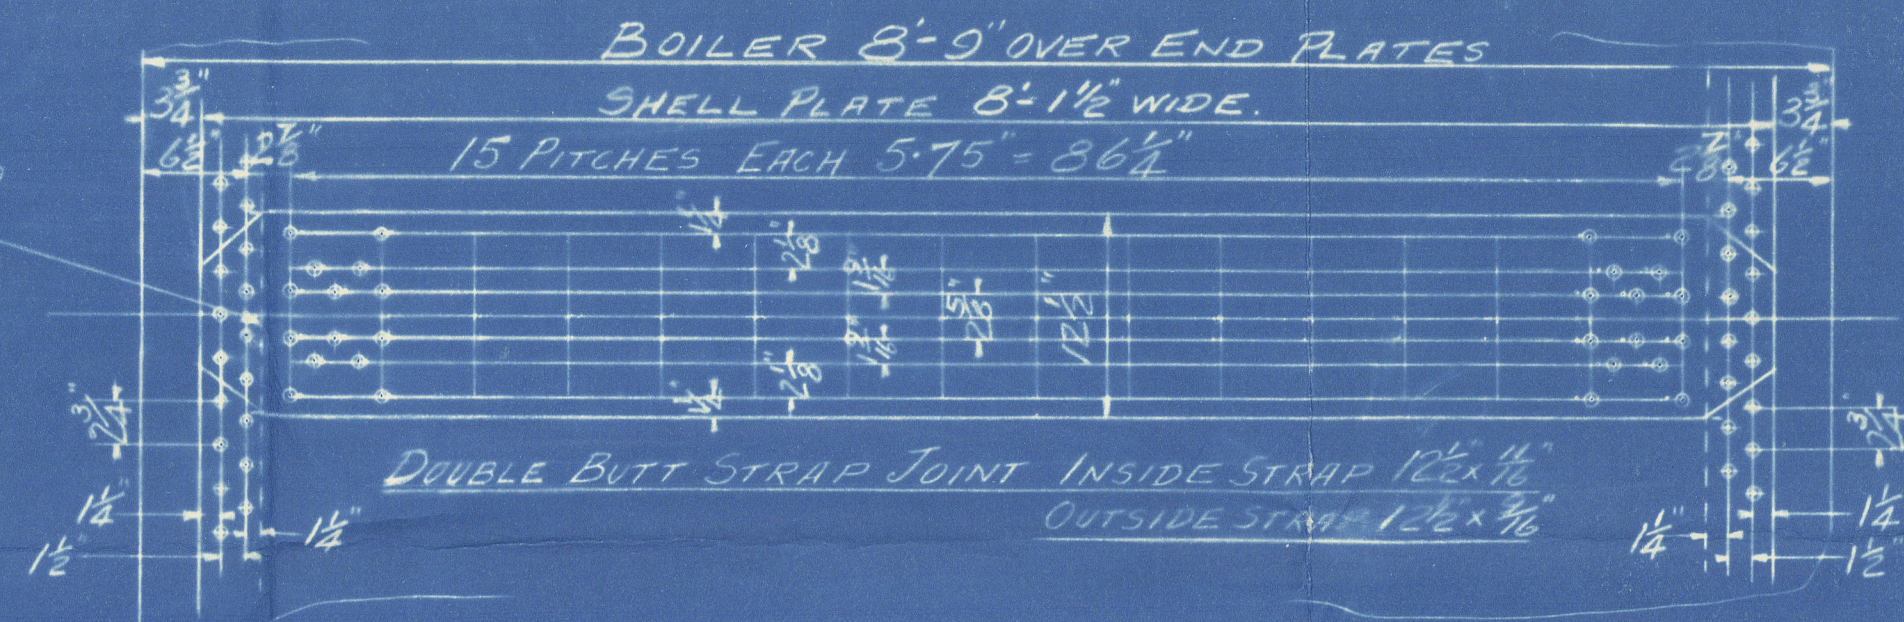 BOILER 8'-9" OVER END PLATES
3 3/4"
SHELL PLATE 8'-1 1/2" WIDE.
3 3/4"
6 1/2"
2 7/8"
15 PITCHES EACH 5.75" = 86 1/4"
2 7/8"
6 1/2"
1 1/4"
2 1/8"
1 9/16"
2 5/8"
12 1/2"
1 9/16"
2 1/8"
1 1/4"
2 3/4"
2 3/4"
DOUBLE BUTT STRAP JOINT INSIDE STRAP 12 1/2" x 11/16"
OUTSIDE STRAP 12 1/2 x 9/16"
1 1/4"
1 1/4"
1 1/4"
1 1/4
1 1/2"
1 1/2"